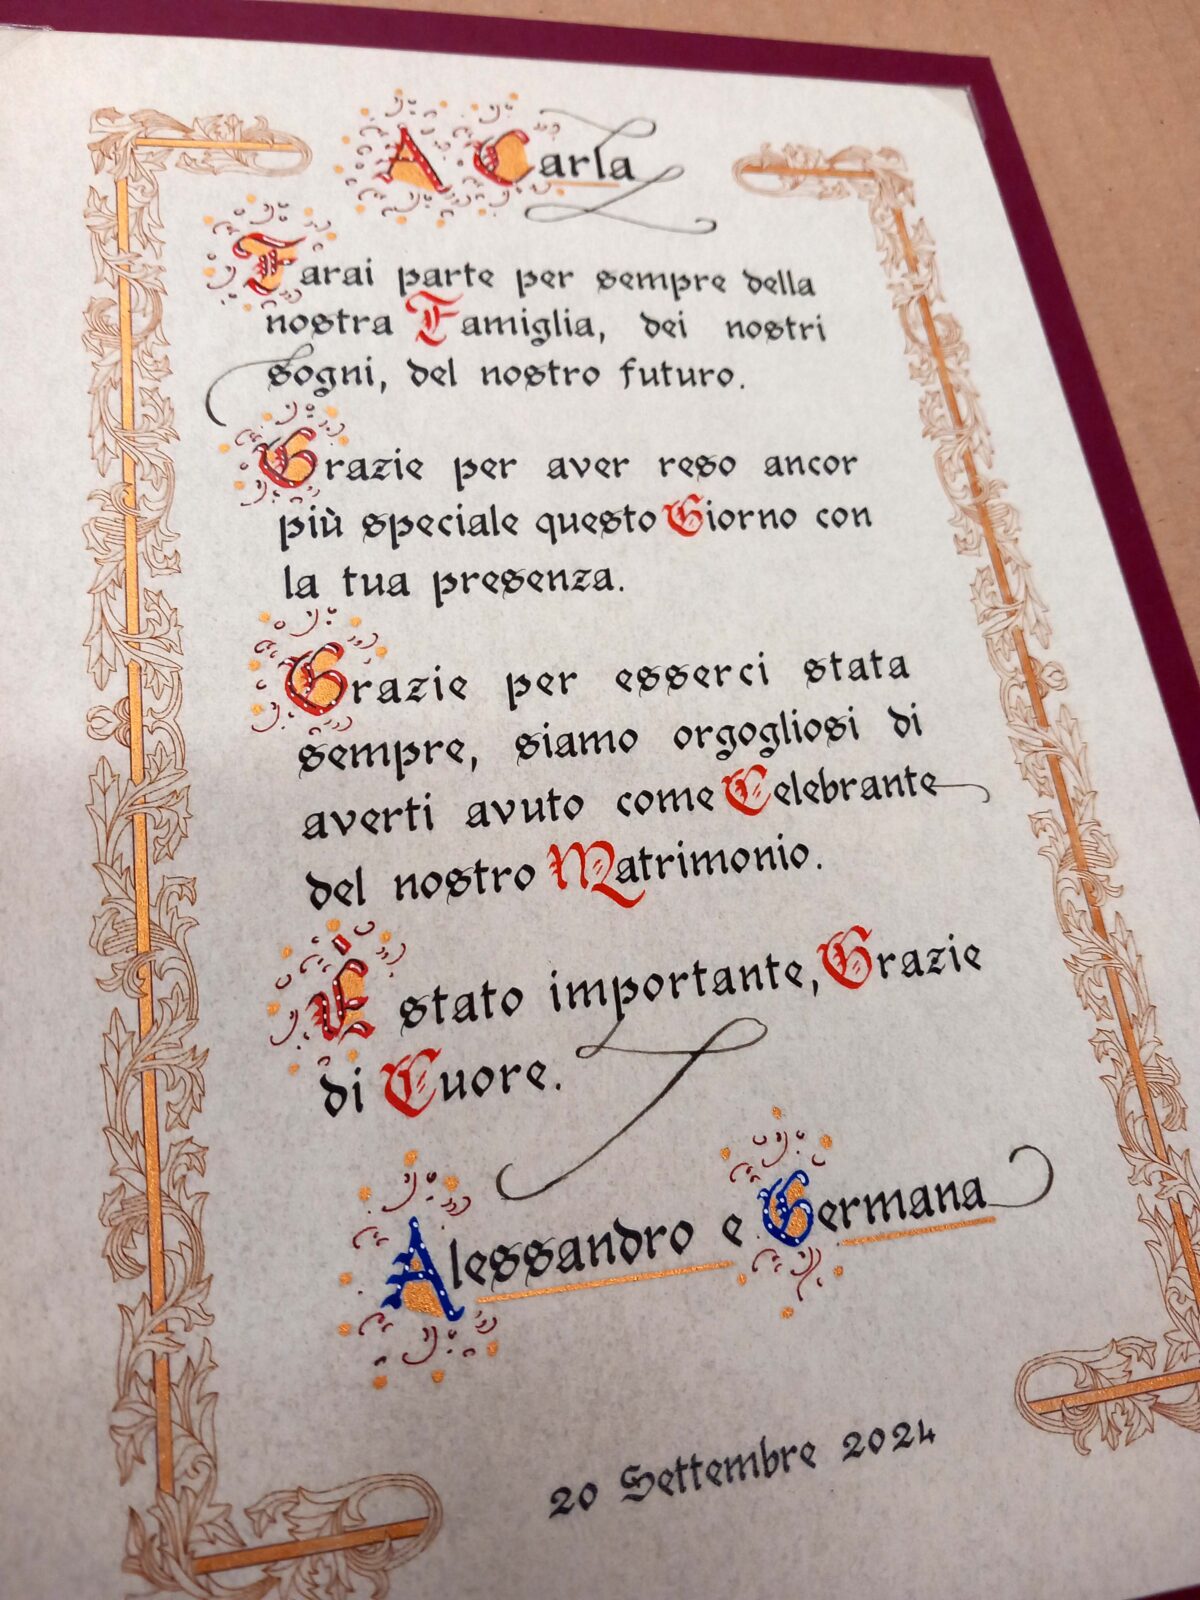 A Carla
Farai parte per sempre della
nostra Famiglia, dei nostri
sogni, del nostro futuro.
Grazie per aver reso ancor
più speciale questo Giorno con
la tua presenza.
Grazie per esserci stata
sempre, siamo orgogliosi di
averti avuto come Celebrante
del nostro Matrimonio.
È stato importante, Grazie
di Cuore.
Alessandro e Germana
20 Settembre 2024